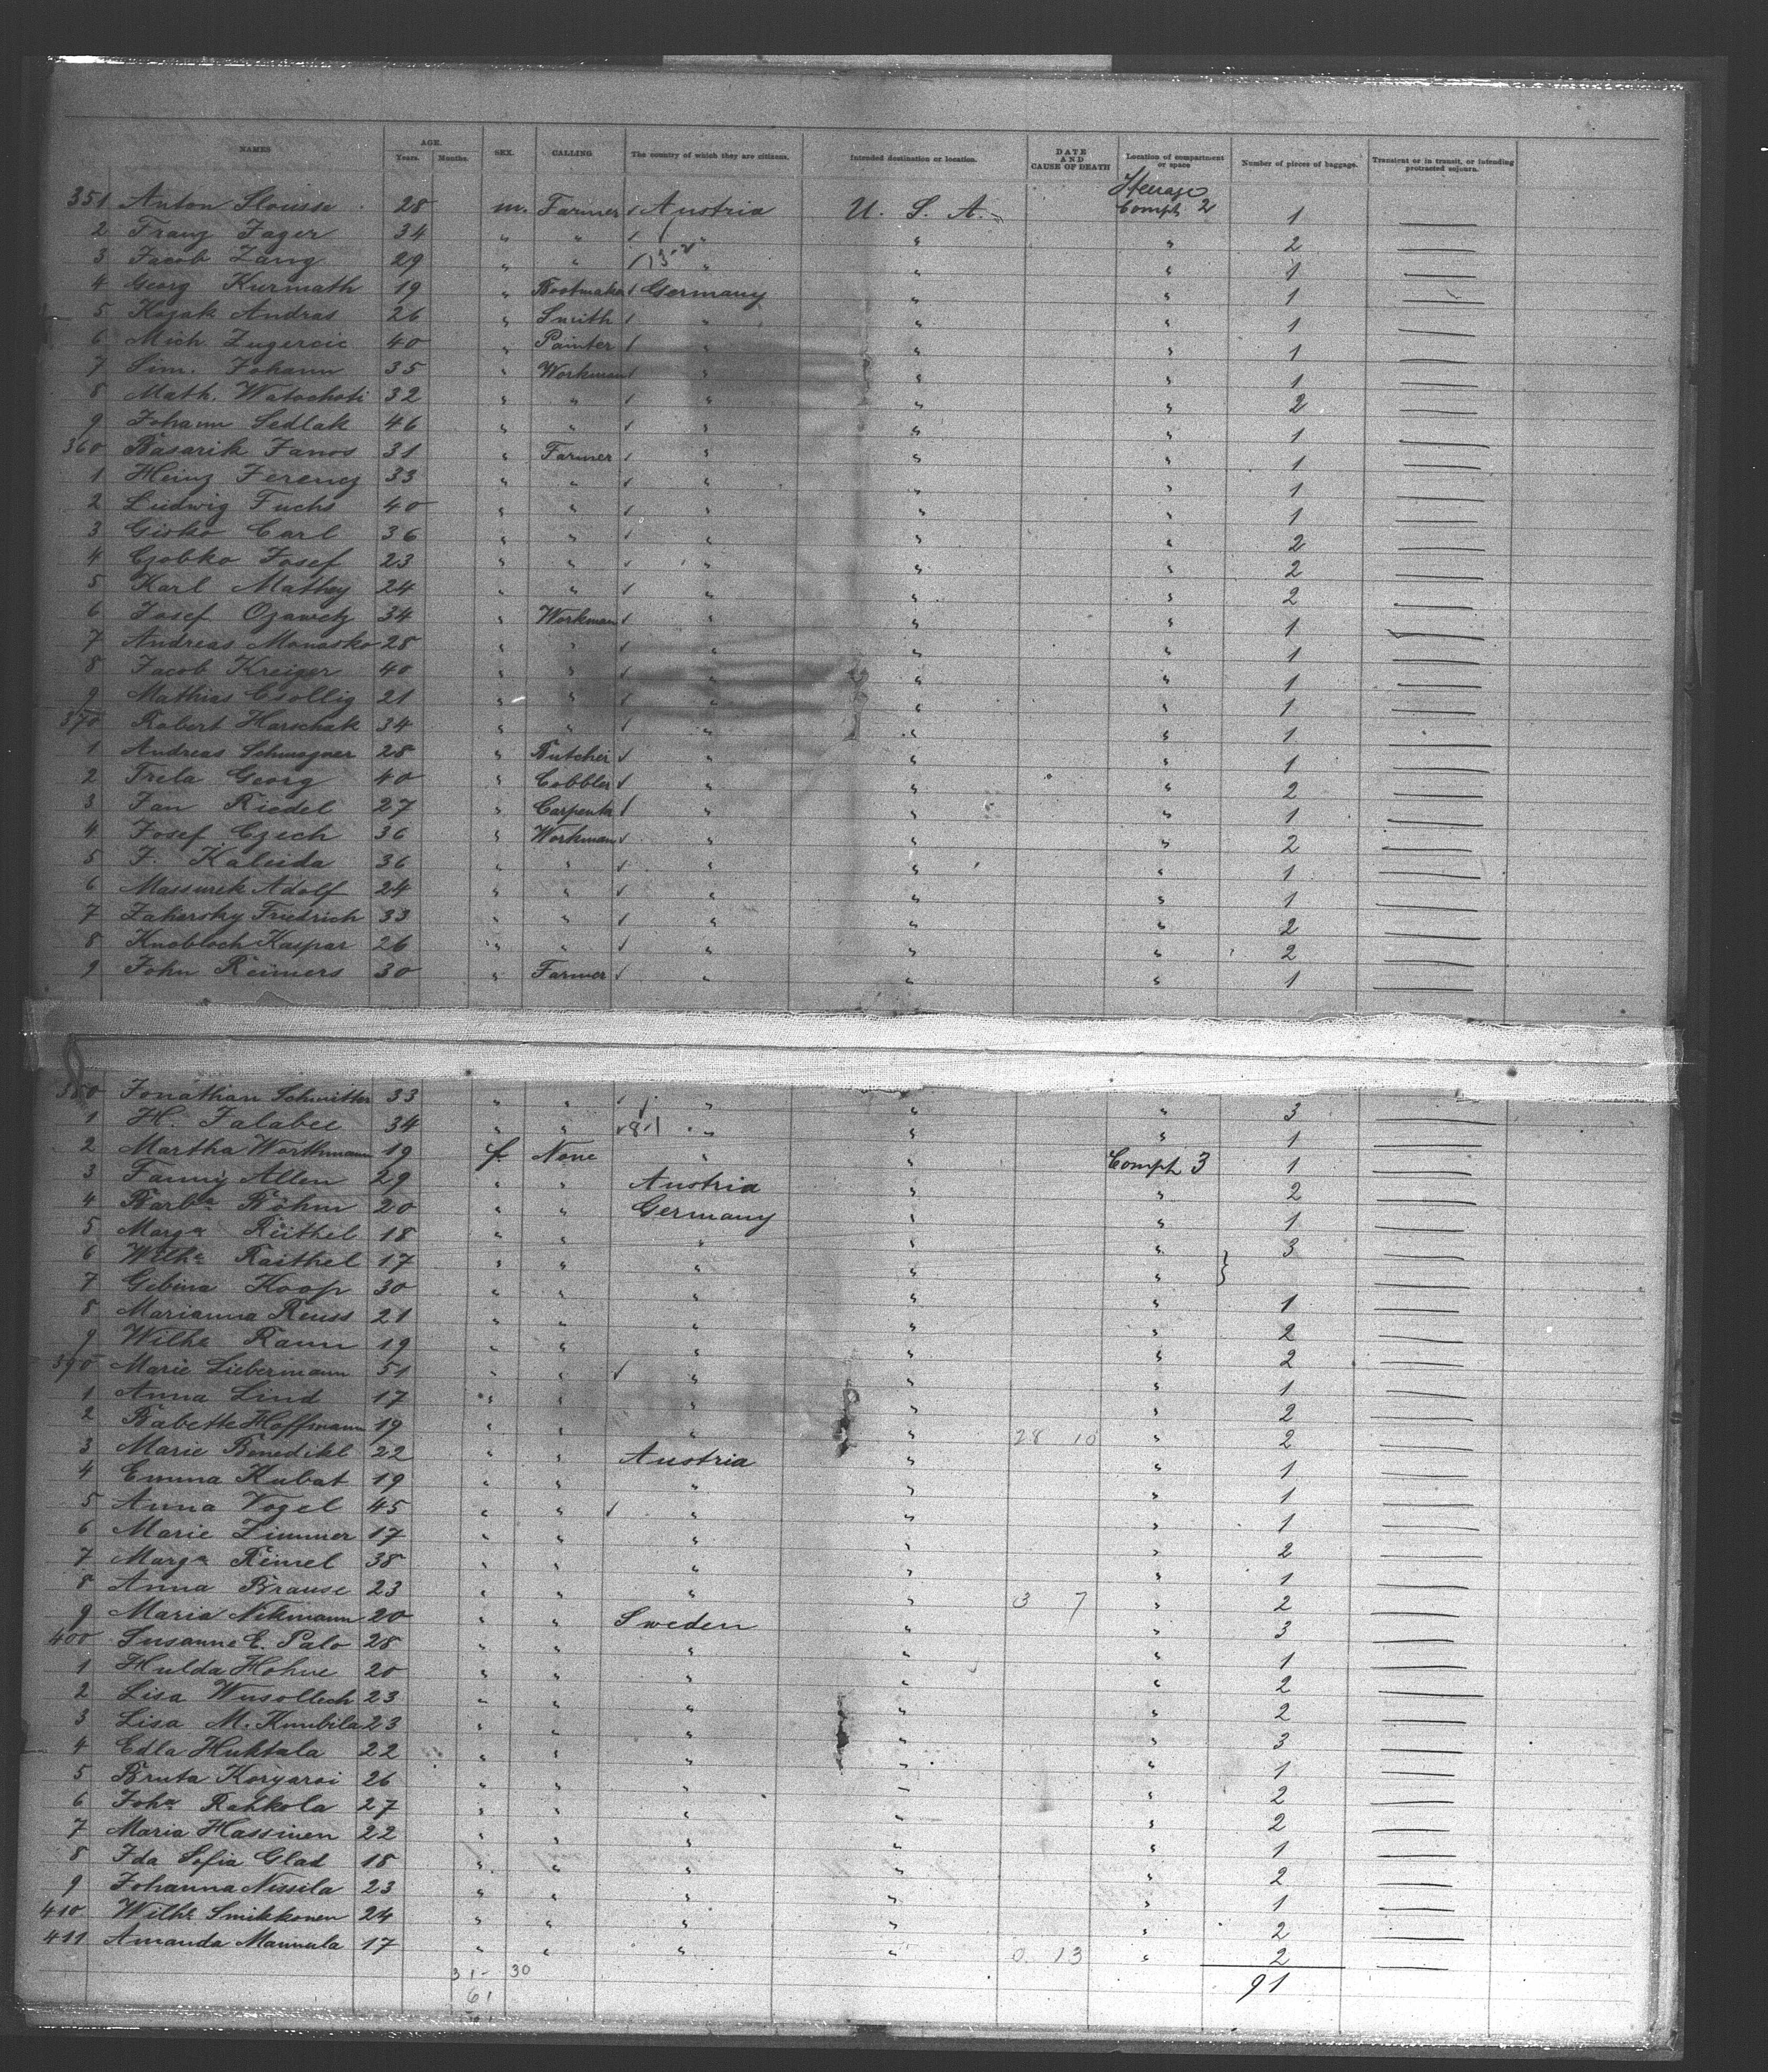 NAMES AGE. Years. Months. SEX. CALLING The country of which they are citizens. Intended destination or location. DATE AND CAUSE OF DEATH Location of compartment or space Number of pieces of baggage. Transient or in transit, or intending protracted sojourn.
Steerage
351 Anton Slousse 28 m. Farmer Austria U. S. A. Compt 2 1 —
2 Franz Jager 34 " " " " " 2 —
3 Jacob Zang 29 " " " " " 1 —
4 Georg Kurmath 19 " Bootmaker Germany " " 1 —
5 Kozak Andras 26 " Smith " " " 1 —
6 Mich Zugercic 40 " Painter " " " 1 —
7 Sim. Johann 35 " Workman " " " 1 —
8 Math. Watochoti 32 " " " " " 2 —
9 Johann Sedlak 46 " " " " " 1 —
360 Basarik Janos 31 " Farmer " " " 1 —
1 Heinz Ferency 33 " " " " " 1 —
2 Ludwig Fuchs 40 " " " " " 1 —
3 Gisko Carl 36 " " " " " 2 —
4 Czobko Josef 23 " " " " " 2 —
5 Karl Mathey 24 " " " " " 2 —
6 Josef Ozawetz 34 " Workman " " " 1 —
7 Andreas Monasko 28 " " " " " 1 —
8 Jacob Kreiger 40 " " " " " 1 —
9 Mathias Csollig 21 " " " " " 1 —
370 Robert Harschak 34 " " " " " 1 —
1 Andreas Schwagner 28 " Butcher " " " 1 —
2 Trela Georg 40 " Cobbler " " " 2 —
3 Jan Riedel 27 " Carpenta " " " 1 —
4 Josef Czech 36 " Workman " " " 2 —
5 J. Kaleida 36 " " " " " 1 —
6 Massurek Adolf 24 " " " " " 1 —
7 Zahersky Friedrich 33 " " " " " 2 —
8 Knobloch Kaspar 26 " " " " " 2 —
9 John Reimers 30 " Farmer " " " 1 —
380 Jonathan Schmitter 33 " " " " " 3 —
1 H. Jalabec 34 " " " " " 1 —
2 Martha Worthmann 19 f. None " " Compt 3 1 —
3 Fanny Allen 29 " " Austria " " 2 —
4 Barba Böhm 20 " " Germany " " 1 —
5 Marga Rüthel 18 " " " " " 3 —
6 Wilhe Raithel 17 " " " " " —
7 Gebina Koop 30 " " " " " 1 —
8 Marianna Reuss 21 " " " " " 2 —
9 Wilhe Raun 19 " " " " " 2 —
390 Marie Liebermann 51 " " " " " 1 —
1 Anna Lind 17 " " " " " 2 —
2 Babette Hoffmann 19 " " " " 28 10 " 2 —
3 Marie Benedikl 22 " " Austria " " 1 —
4 Emma Kubat 19 " " " " " 1 —
5 Anna Vogel 45 " " " " " 1 —
6 Marie Zimmer 17 " " " " " 2 —
7 Marga Reinel 38 " " " " " 1 —
8 Anna Brause 23 " " " " 3 7 " 2 —
9 Maria Nikmann 20 " " Sweden " " 3 —
400 Susanne E. Palo 28 " " " " " 1 —
1 Hulda Hohne 20 " " " " " 2 —
2 Lisa Wusollech 23 " " " " " 2 —
3 Lisa M. Knubila 23 " " " " " 3 —
4 Edla Huktala 22 " " " " " 1 —
5 Bruta Koryaroi 26 " " " " " 2 —
6 Joha Rahkola 27 " " " " " 2 —
7 Maria Hassinen 22 " " " " " 1 —
8 Ida Sofia Glad 18 " " " " " 2 —
9 Johanna Nissila 23 " " " " " 1 —
410 Wilhe Smikkonen 24 " " " " " 2 —
411 Amanda Mannula 17 " " " " 0 13 " 2 —
31 - 30 91
61